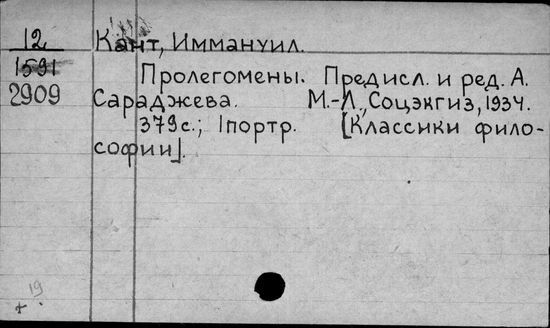 12 Кант, Иммануил.
1591 Пролегомены. Предисл. и ред. А.
2909 Сараджева. М.-Л., Соцэкгиз, 1934.
379с.; 1портр. [Классики фило-
софии].
19
+